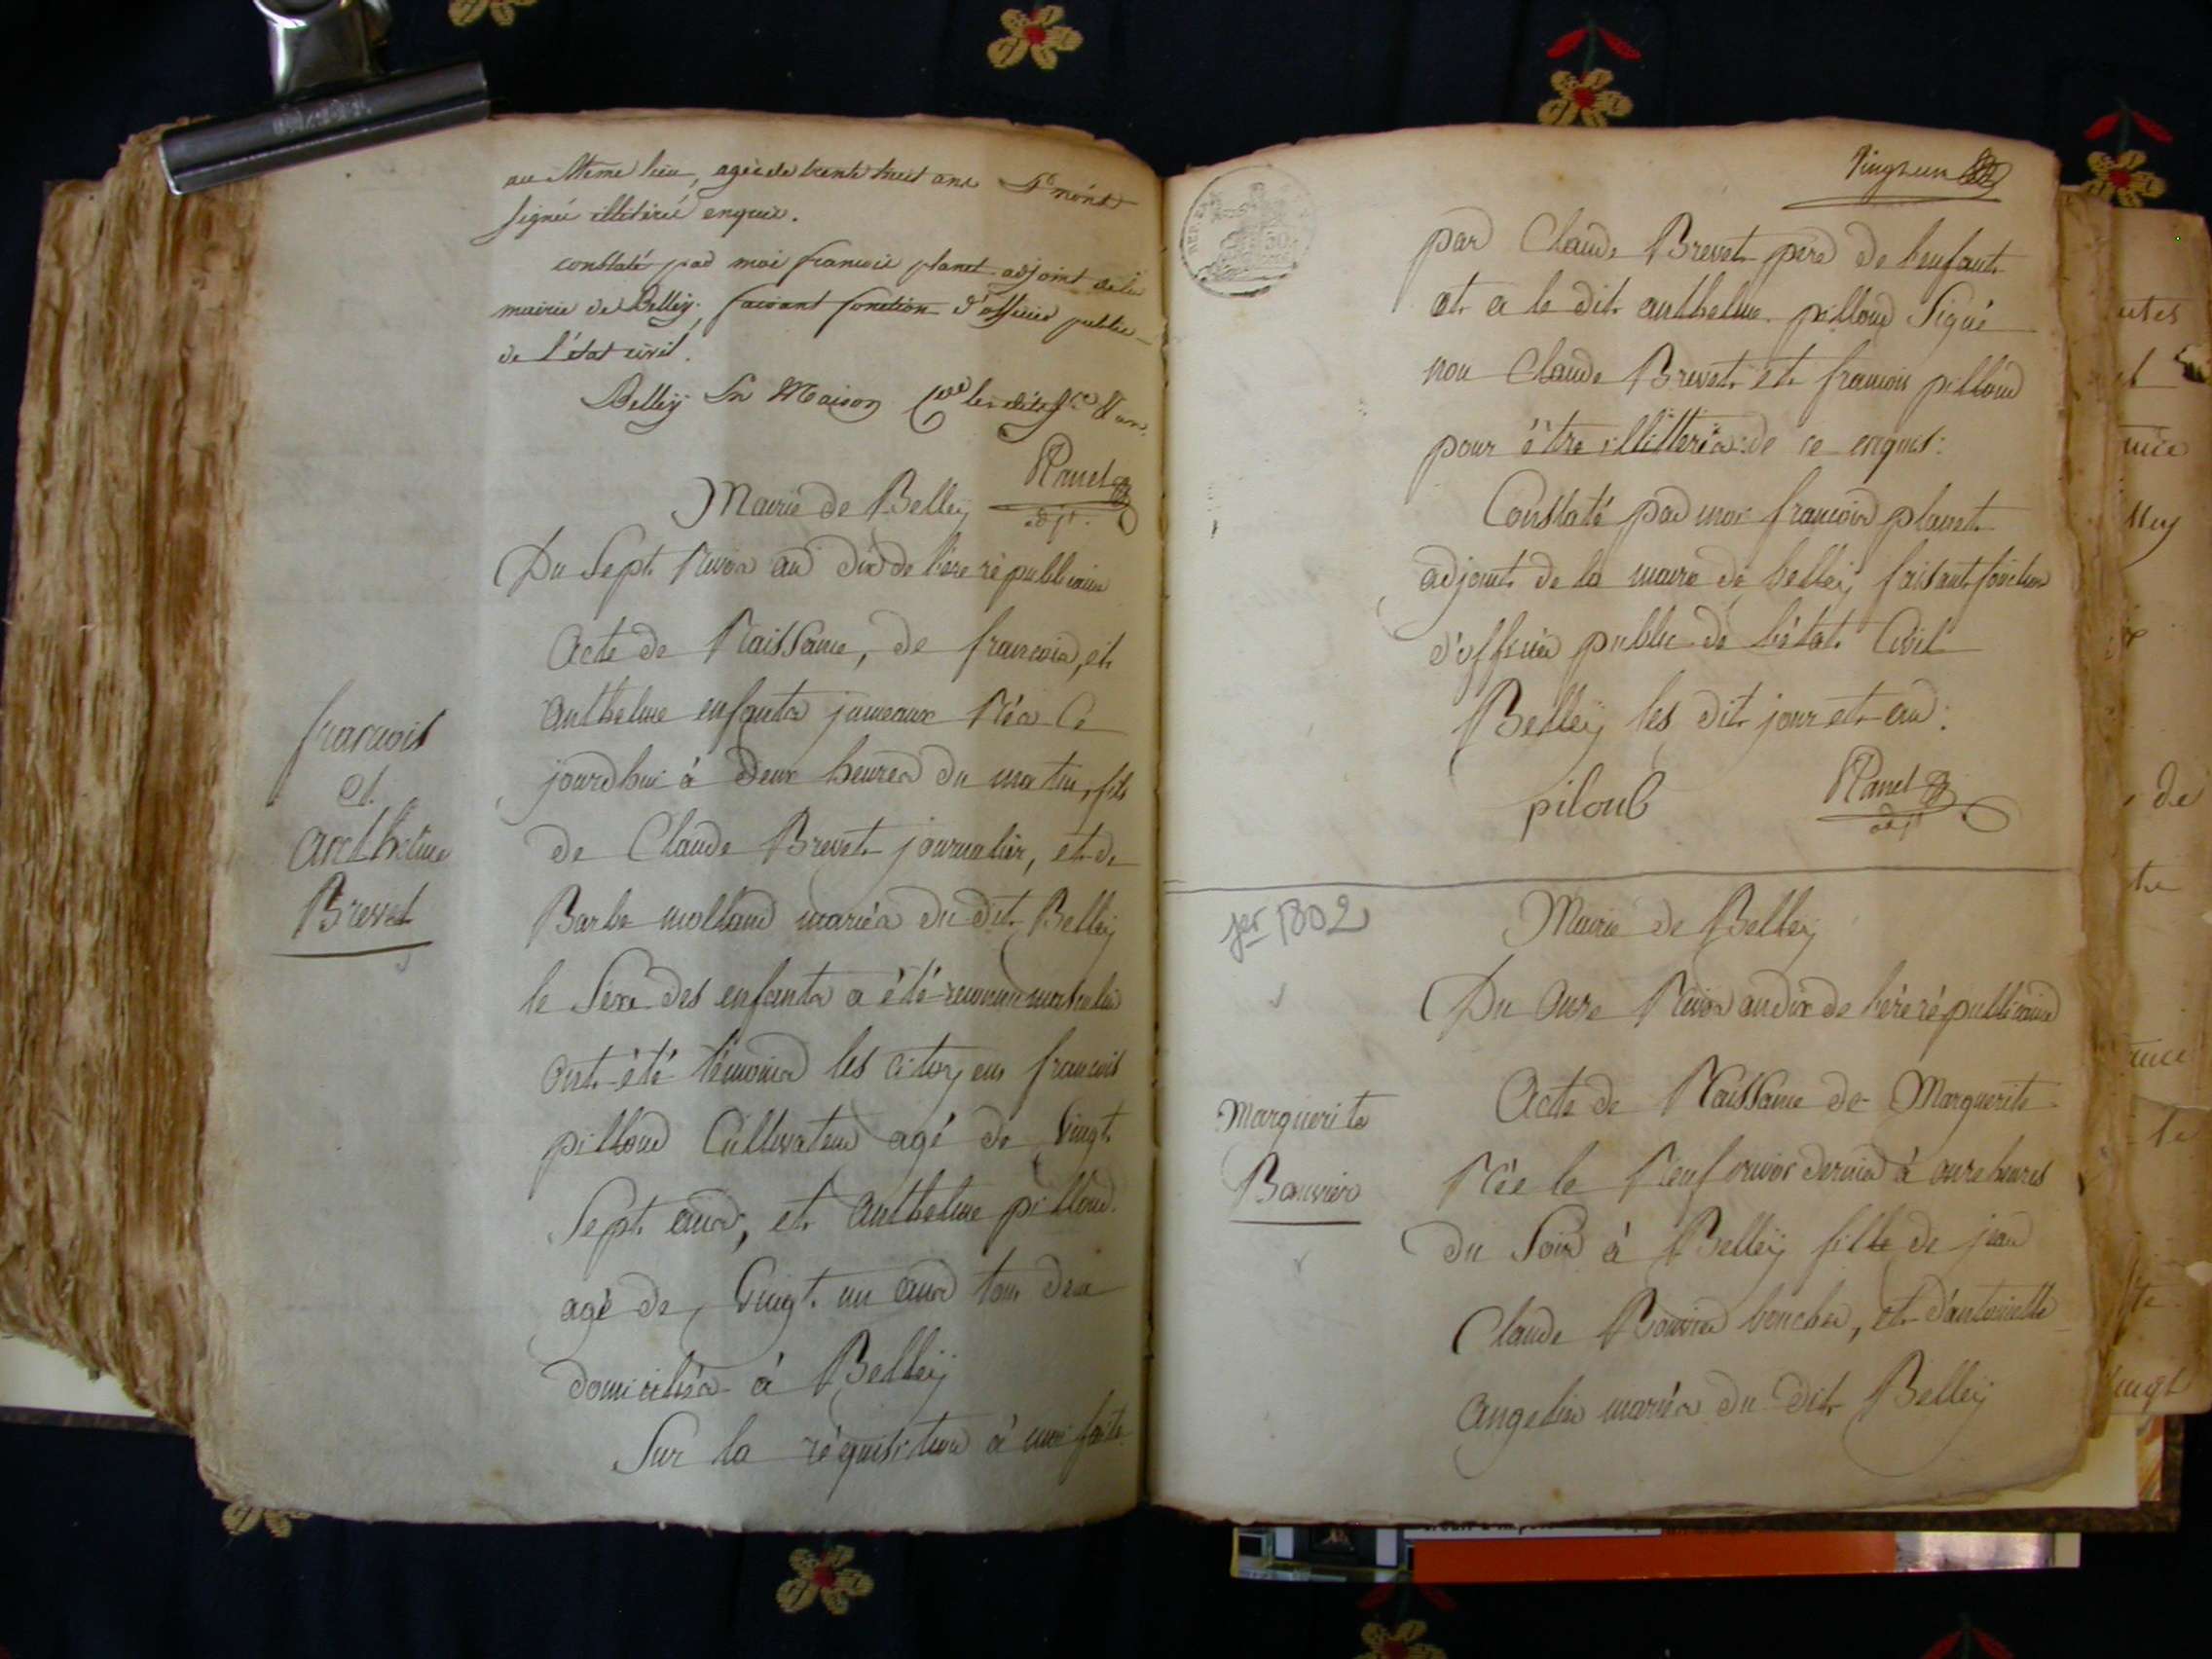 au Meme lieu, agée de trente huit ans & n'ont
signé illitéré enquis.
constaté par moi francois planet adjoint de la
mairie de Belley, faisant fonction d'officier public
de l'état civil.
Belley En Maison les dits an
Planet
adjt.
Mairie de Belleÿ
Du Sept Nivos an dix de l'ère républicaine
Acte de Naissance, de francois, et
anthelme enfants jumeaux Nés Ce
jourdhui à deux heures du matin, fils
de Claude Brevet journalier, et de
Barbe mollard mariés du dit Belleÿ
le Sexe des enfants a été reconnu masculin
ont été témoins les citoyens francois
pilloud Cultivateur agé de Vingt
Sept ans, et anthelme pilloud
agé de Vingt un ans tous deux
domiciliés à Belleÿ
Sur la réquisition à moi faite
francois
et
anthelme
Brevet
Vingt un
par Claude Brevet père de lenfant
et a le dit anthelme pilloud Signé
non Claude Brevet et francois pilloud
pour être illittérés de ce enquis:
Constaté par moi francois planet
adjoint de la maire de belleÿ faisant fonction
d'officier public de l'état Civil
Belleÿ les dit jour et an.
piloub
Planet
adjt
jer 1802
Mairie de Belleÿ
Du Onze Nivos an dix de l'ère républicaine
Acte de Naissance de Marguerite
Née le Neuf nivos dernier à onze heures
du Soir à Belleÿ fille de jean
Claude Bouvier boucher, et d'antoinette
Angelin mariés du dit Belleÿ
Marguerite
Bouvier